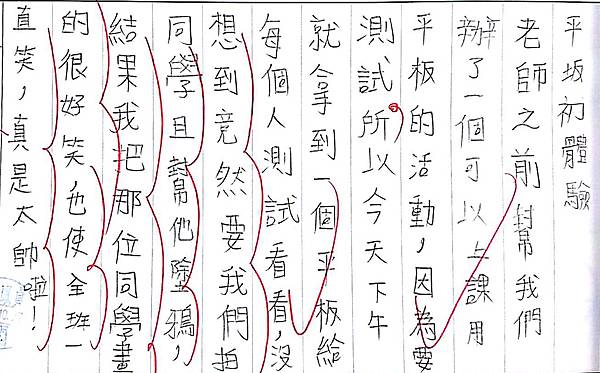 平坂初體驗
老師之前幫我們
辦了一個可以上課用
平板的活動，因為要
測試，所以今天下午
就拿到一個平板給
每個人測試看看，沒
想到竟然要我們拍
同學且幫他墬鴉，
結果我把那位同學畫
的很好笑，也使全班一
直笑，真是太帥啦！